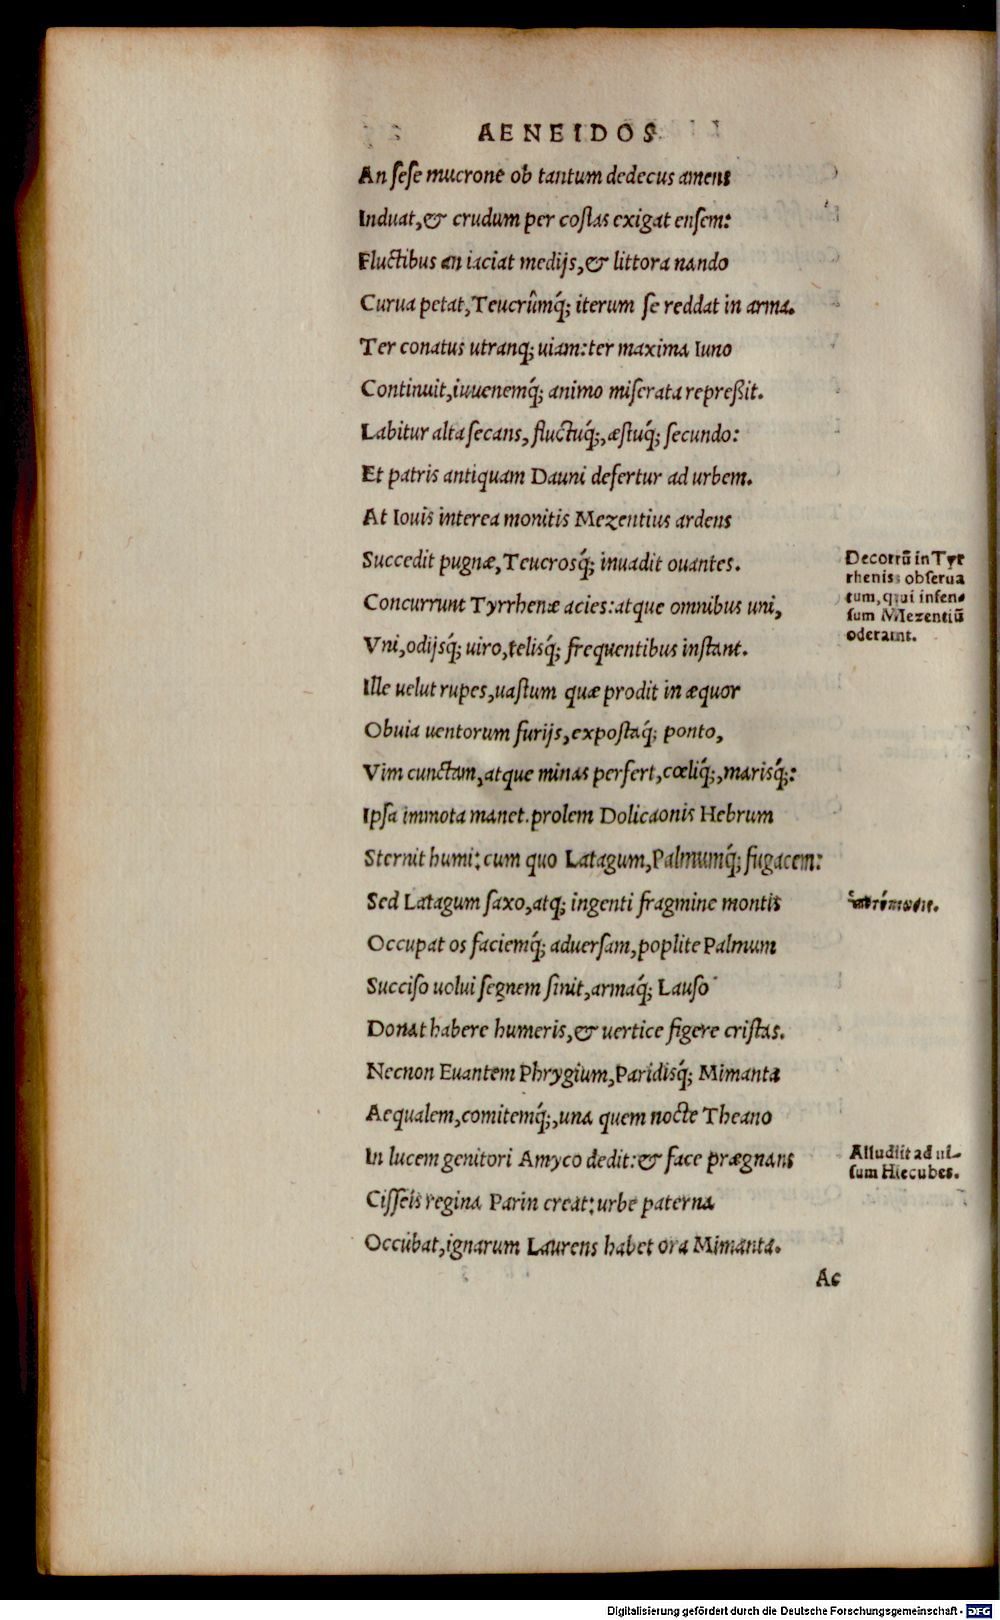 AENEIDOS
An sese mucrone ob tantum dedecus amens
Induat, & crudum per costas exigat ensem:
Fluctibus an iaciat medijs, & littora nando
Curua petat, Teucrûmq́; iterum se reddat in arma.
Ter conatus utranq; uiam: ter maxima Iuno
Continuit, iuuenemq́; animo miserata repreßit.
Labitur alta secans, fluctuq́;, æstuq́; secundo:
Et patris antiquam Dauni defertur ad urbem.
At Iouis interea monitis Mezentius ardens
Succedit pugnæ, Teucrosq́; inuadit ouantes.
Decorrũ in Tyr
rhenis obserua
tum, qui infen-
sum Mezentiũ
oderaint.
Concurrunt Tyrrhenæ acies: atque omnibus uni,
Vni, odijsq́; uiro, telisq́; frequentibus instant.
Ille uelut rupes, uastum quæ prodit in æquor
Obuia uentorum furijs, expostaq́; ponto,
Vim cunctam, atque minas perfert, cœliq́;, marisq́;:
Ipsa immota manet. prolem Dolicaonis Hebrum
Sternit humi: cum quo Latagum, Palmumq́; fugacem:
Sed Latagum saxo, atq; ingenti fragmine montis
Occupat os faciemq́; aduersam, poplite Palmum
Succiso uolui segnem sinit, armaq́; Lauso
Donat habere humeris, & uertice figere cristas.
Necnon Euantem Phrygium, Paridisq́; Mimanta
Aequalem, comitemq́;, una quem nocte Theano
In lucem genitori Amyco dedit: & face prægnans
Alludit ad ui-
sum Hecubes.
Cisseis regina Parin creat: urbe paterna
Occubat, ignarum Laurens habet ora Mimanta.
Ac
Digitalisierung gefördert durch die Deutsche Forschungsgemeinschaft - DFG